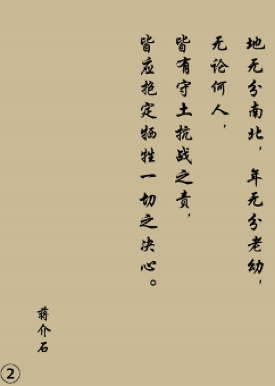 地无分南北，年无分老幼，
无论何人，
皆有守土抗战之责，
皆应抱定牺牲一切之决心。
蒋介石
2